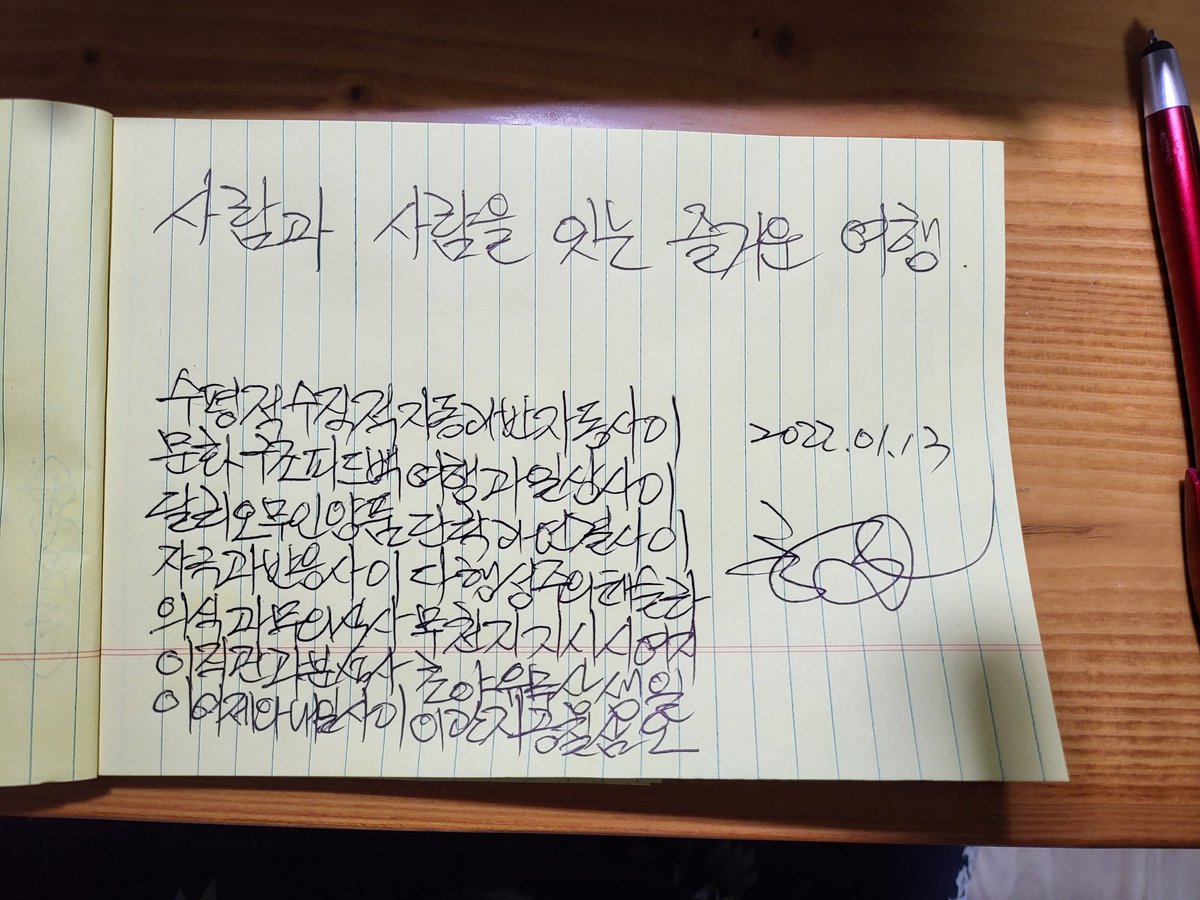 사람과 사람을 잇는 즐거운 여행.
수평적수직적자동과반자동사이
문화구조피드백여행과일상사이
달리오무인양품단락과연결사이
자극과반응사이다행성주의테슬라
의식과무의식사무현지지시시여지
이직관과분석사
이어제와내일사이이한지공을삼오
2022.01.13